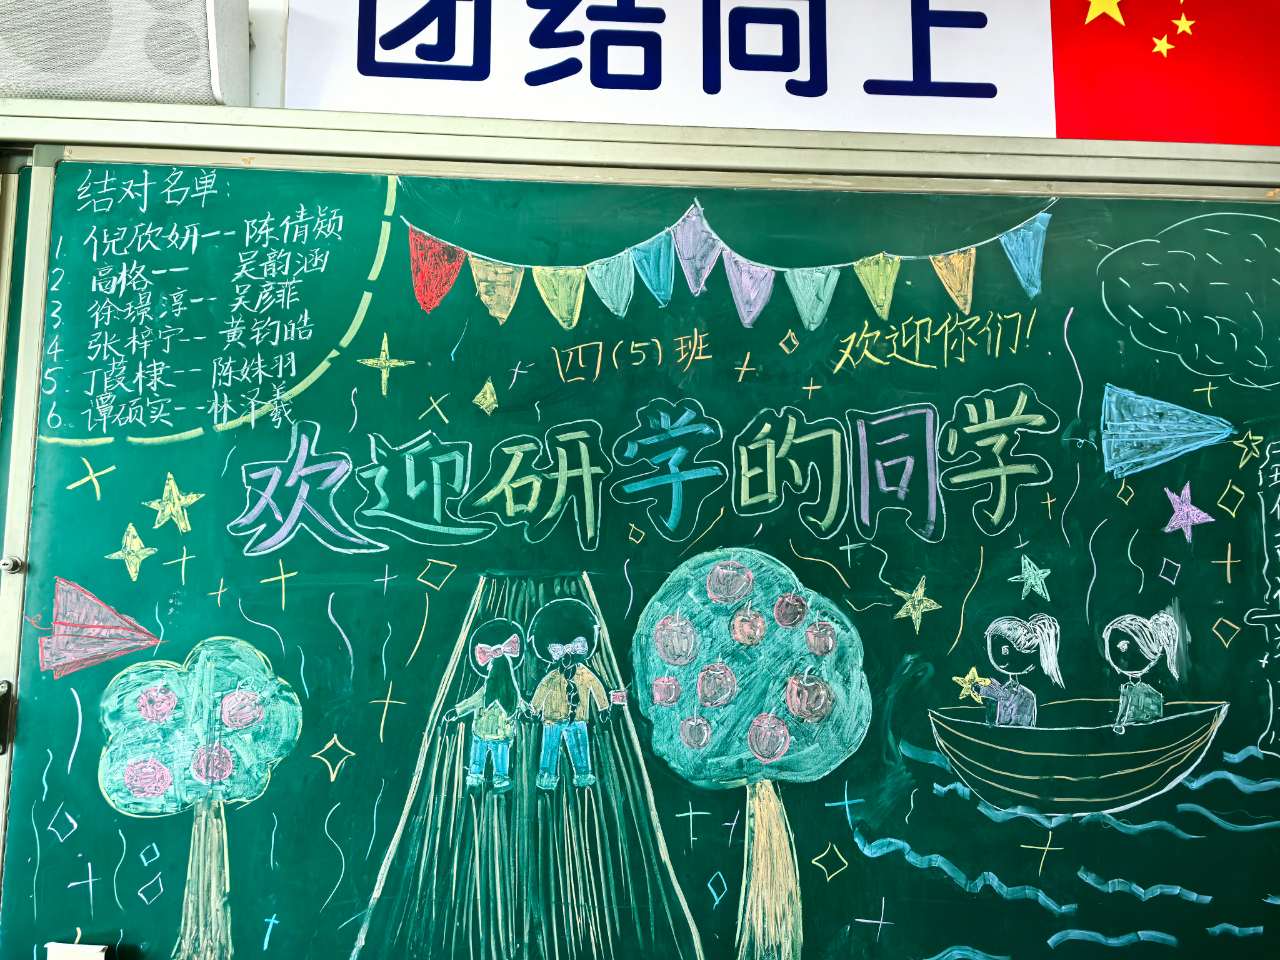 团结向上
结对名单:
1. 倪欣妍-- 陈倩颍
2. 高格-- 吴韵涵
3. 徐璟淳-- 吴彦菲
4. 张梓宁-- 黄钧皓
5. 丁葭棣-- 陈姝羽
6. 谭硕实-- 林泽羲
四(5)班 欢迎你们!
欢迎研学的同学